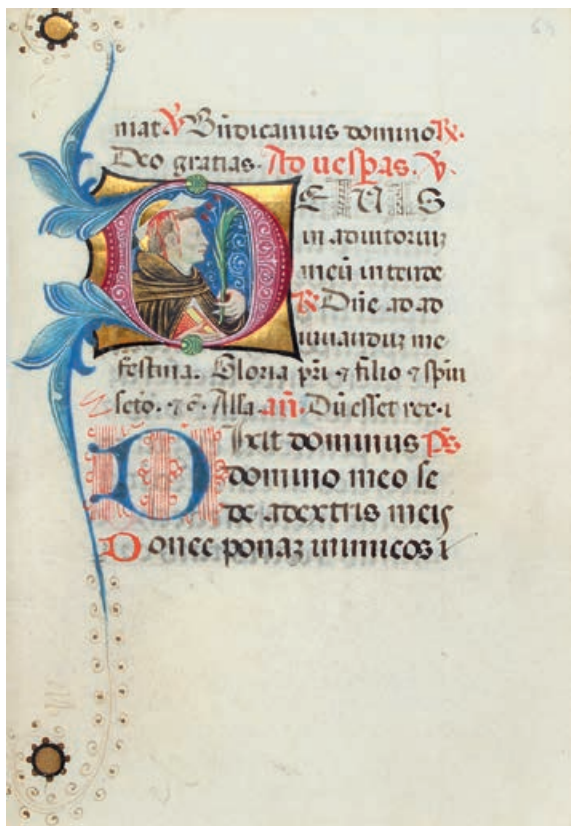 mat. V Bñdicamus domino R.
Deo gratias. Ad uespas. V.
DEUS
in adiutoriuʒ
meū intende
R Dñe ad ad
iuuanduʒ me
festina. Gloria pr̄i ⁊ filio ⁊ spiri
scto. ⁊c̄. Alla. añ. Dū esset rex. i
Dixit dominus ps
domino meo se
de adextris meis
Donec ponaʒ inimicos t